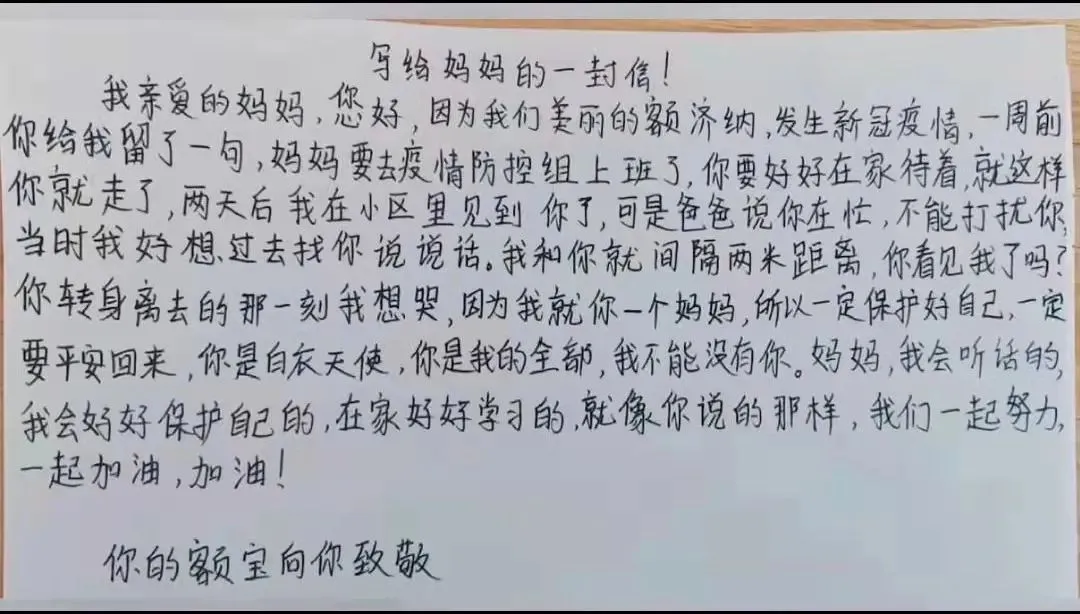 写给妈妈的一封信！
我亲爱的妈妈，您好，因为我们美丽的额济纳，发生新冠疫情，一周前
你给我留了一句，妈妈要去疫情防控组上班了，你要好好在家待着，就这样
你就走了，两天后我在小区里见到你了，可是爸爸说你在忙，不能打扰你，
当时我好想过去找你说说话。我和你就间隔两米距离，你看见我了吗？
你转身离去的那一刻我想哭，因为我就你一个妈妈，所以一定保护好自己，一定
要平安回来，你是白衣天使，你是我的全部，我不能没有你。妈妈，我会听话的，
我会好好保护自己的，在家好好学习的，就像你说的那样，我们一起努力，
一起加油，加油！
你的额宝向你致敬